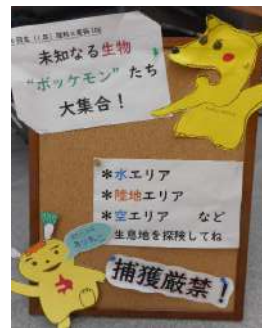 未知なる生物
“ボッケモン”たち
大集合！
＊水エリア
＊陸地エリア
＊空エリア　など
生息地を探険してね
捕獲厳禁！